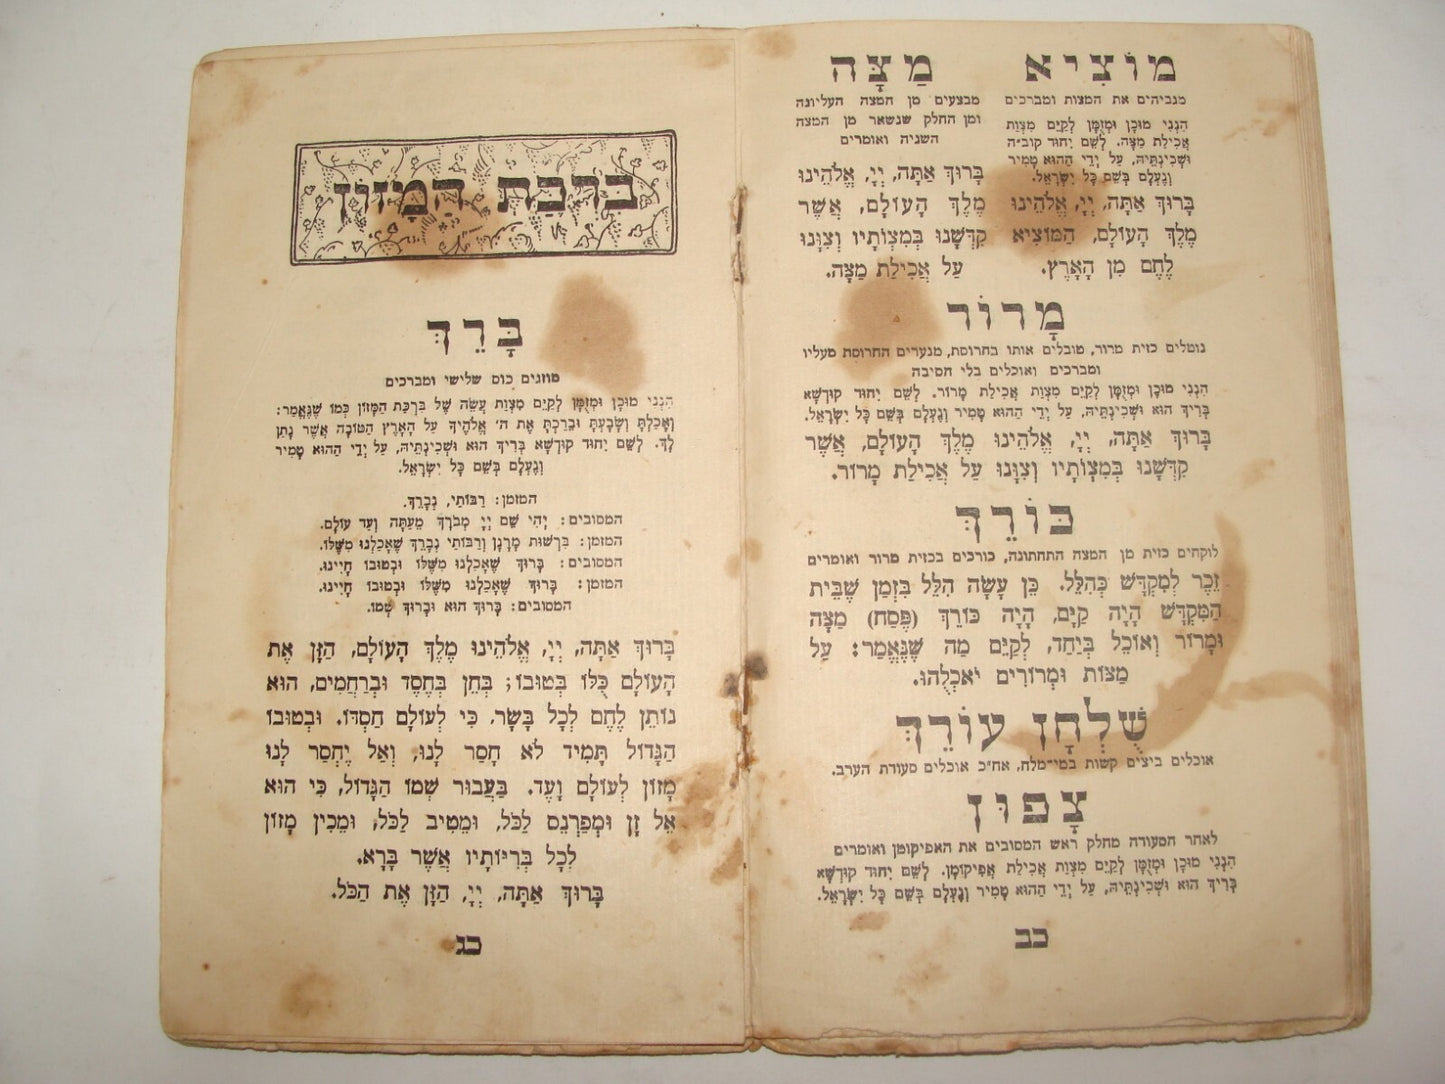 מוֹצִיא
מגביהים את המצות ומברכים
הִנְנִי מוּכָן וּמְזֻמָּן לְקַיֵּם מִצְוַת
אֲכִילַת מַצָּה. לְשֵׁם יִחוּד קוב״ה
וּשְׁכִינְתֵּיהּ, עַל יְדֵי הַהוּא טָמִיר
וְנֶעְלָם בְּשֵׁם כָּל יִשְׂרָאֵל.
בָּרוּךְ אַתָּה, יְיָ, אֱלֹהֵינוּ
מֶלֶךְ הָעוֹלָם, הַמּוֹצִיא
לֶחֶם מִן הָאָרֶץ.
מַצָּה
מבצעים מן המצה העליונה
ומן החלק שנשאר מן המצה
השניה ואומרים
בָּרוּךְ אַתָּה, יְיָ, אֱלֹהֵינוּ
מֶלֶךְ הָעוֹלָם, אֲשֶׁר
קִדְּשָׁנוּ בְּמִצְוֹתָיו וְצִוָּנוּ
עַל אֲכִילַת מַצָּה.
מָרוֹר
נוטלים כזית מרור, טובלים אותו בחרוסת, מנערים החרוסת מעליו
ומברכים ואוכלים בלי חסיבה
הִנְנִי מוּכָן וּמְזֻמָּן לְקַיֵּם מִצְוַת אֲכִילַת מָרוֹר. לְשֵׁם יִחוּד קוּדְשָׁא
בְּרִיךְ הוּא וּשְׁכִינְתֵּיהּ, עַל יְדֵי הַהוּא טָמִיר וְנֶעְלָם בְּשֵׁם כָּל יִשְׂרָאֵל.
בָּרוּךְ אַתָּה, יְיָ, אֱלֹהֵינוּ מֶלֶךְ הָעוֹלָם, אֲשֶׁר
קִדְּשָׁנוּ בְּמִצְוֹתָיו וְצִוָּנוּ עַל אֲכִילַת מָרוֹר.
כּוֹרֵךְ
לוקחים כזית מן המצה התחתונה, כורכים בכזית מרור ואומרים
זֵכֶר לְמִקְדָּשׁ כְּהִלֵּל. כֵּן עָשָׂה הִלֵּל בִּזְמַן שֶׁבֵּית
הַמִּקְדָּשׁ הָיָה קַיָּם, הָיָה כּוֹרֵךְ (פֶּסַח) מַצָּה
וּמָרוֹר וְאוֹכֵל בְּיַחַד, לְקַיֵּם מַה שֶּׁנֶּאֱמַר: עַל
מַצּוֹת וּמְרוֹרִים יֹאכְלֻהוּ.
שֻׁלְחָן עוֹרֵךְ
אוכלים ביצים קשות במי־מלח, אח״כ אוכלים סעודת הערב.
צָפוּן
לאחר הסעודה מחלק ראש המסובים את האפיקומן ואומרים
הִנְנִי מוּכָן וּמְזֻמָּן לְקַיֵּם מִצְוַת אֲכִילַת אֲפִיקוֹמָן. לְשֵׁם יִחוּד קוּדְשָׁא
בְּרִיךְ הוּא וּשְׁכִינְתֵּיהּ, עַל יְדֵי הַהוּא טָמִיר וְנֶעְלָם בְּשֵׁם כָּל יִשְׂרָאֵל.
כב
בִּרְכַּת הַמָּזוֹן
בָּרֵךְ
מוזגים כוס שלישי ומברכים
הִנְנִי מוּכָן וּמְזֻמָּן לְקַיֵּם מִצְוַת עֲשֵׂה שֶׁל בִּרְכַּת הַמָּזוֹן כְּמוֹ שֶׁנֶּאֱמַר:
וְאָכַלְתָּ וְשָׂבָעְתָּ וּבֵרַכְתָּ אֶת ה׳ אֱלֹהֶיךָ עַל הָאָרֶץ הַטּוֹבָה אֲשֶׁר נָתַן
לָךְ. לְשֵׁם יִחוּד קוּדְשָׁא בְּרִיךְ הוּא וּשְׁכִינְתֵּיהּ, עַל יְדֵי הַהוּא טָמִיר
וְנֶעְלָם בְּשֵׁם כָּל יִשְׂרָאֵל.
המזמן: רַבּוֹתַי, נְבָרֵךְ.
המסובים: יְהִי שֵׁם יְיָ מְבֹרָךְ מֵעַתָּה וְעַד עוֹלָם.
המזמן: בִּרְשׁוּת מָרָנָן וְרַבּוֹתַי נְבָרֵךְ שֶׁאָכַלְנוּ מִשֶּׁלּוֹ.
המסובים: בָּרוּךְ שֶׁאָכַלְנוּ מִשֶּׁלּוֹ וּבְטוּבוֹ חָיִינוּ.
המזמן: בָּרוּךְ שֶׁאָכַלְנוּ מִשֶּׁלּוֹ וּבְטוּבוֹ חָיִינוּ.
המסובים: בָּרוּךְ הוּא וּבָרוּךְ שְׁמוֹ.
בָּרוּךְ אַתָּה, יְיָ, אֱלֹהֵינוּ מֶלֶךְ הָעוֹלָם, הַזָּן אֶת
הָעוֹלָם כֻּלּוֹ בְּטוּבוֹ; בְּחֵן בְּחֶסֶד וּבְרַחֲמִים, הוּא
נוֹתֵן לֶחֶם לְכָל בָּשָׂר, כִּי לְעוֹלָם חַסְדּוֹ. וּבְטוּבוֹ
הַגָּדוֹל תָּמִיד לֹא חָסַר לָנוּ, וְאַל יֶחְסַר לָנוּ
מָזוֹן לְעוֹלָם וָעֶד. בַּעֲבוּר שְׁמוֹ הַגָּדוֹל, כִּי הוּא
אֵל זָן וּמְפַרְנֵס לַכֹּל, וּמֵטִיב לַכֹּל, וּמֵכִין מָזוֹן
לְכָל בְּרִיּוֹתָיו אֲשֶׁר בָּרָא.
בָּרוּךְ אַתָּה, יְיָ, הַזָּן אֶת הַכֹּל.
כג